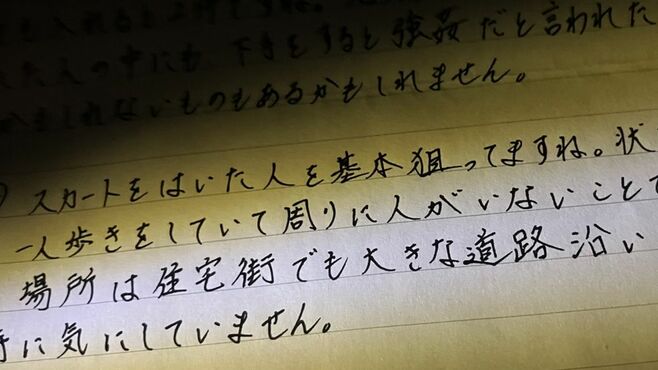 も入れると上げますね。
た人の中にも 下手をすると強姦だと言われた
かもしれないものもあるかもしれません。
) スカートをはいた人を基本狙ってますね。状
一人歩きをしていて周りに人がいないことで
場所は住宅街でも大きな道路沿い
特に気にしていません。